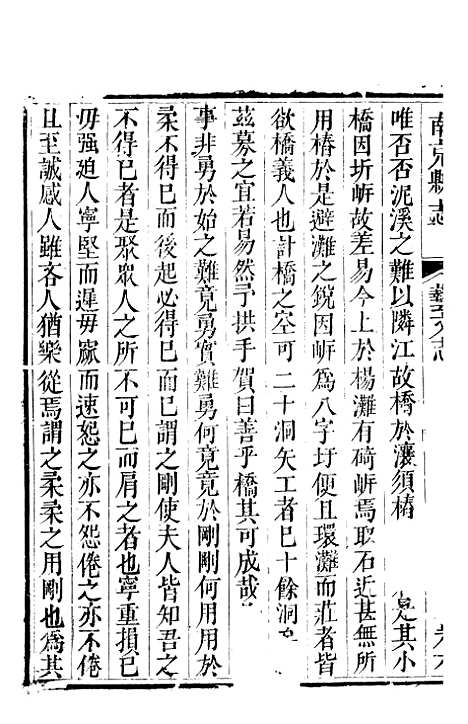 南充縣志 藝文志
唯否否泥溪之難以隣江故橋於瀼須樁 是其小
橋因圻㟁故差易今上於楊灘有碕㟁焉取石近甚無所
用樁於是避灘之銳因㟁為八字圩便且環灘而莊者皆
欲橋義人也計橋之空可二十洞矢工者巳十餘洞
茲募之宜若易然予拱手賀曰善乎橋其可成哉
事非勇於始之難竟勇實難勇何竟竟於剛剛何用用於
柔不得巳而後起必得巳而巳謂之剛使夫人皆知吾之
不得巳者是聚眾人之所不可巳而肩之者也寧重損巳
毋强迫人寧堅而遲毋窳而速恕之亦不怨倦之亦不倦
且至誠感人雖吝人猶樂從焉謂之柔柔之用剛也為其